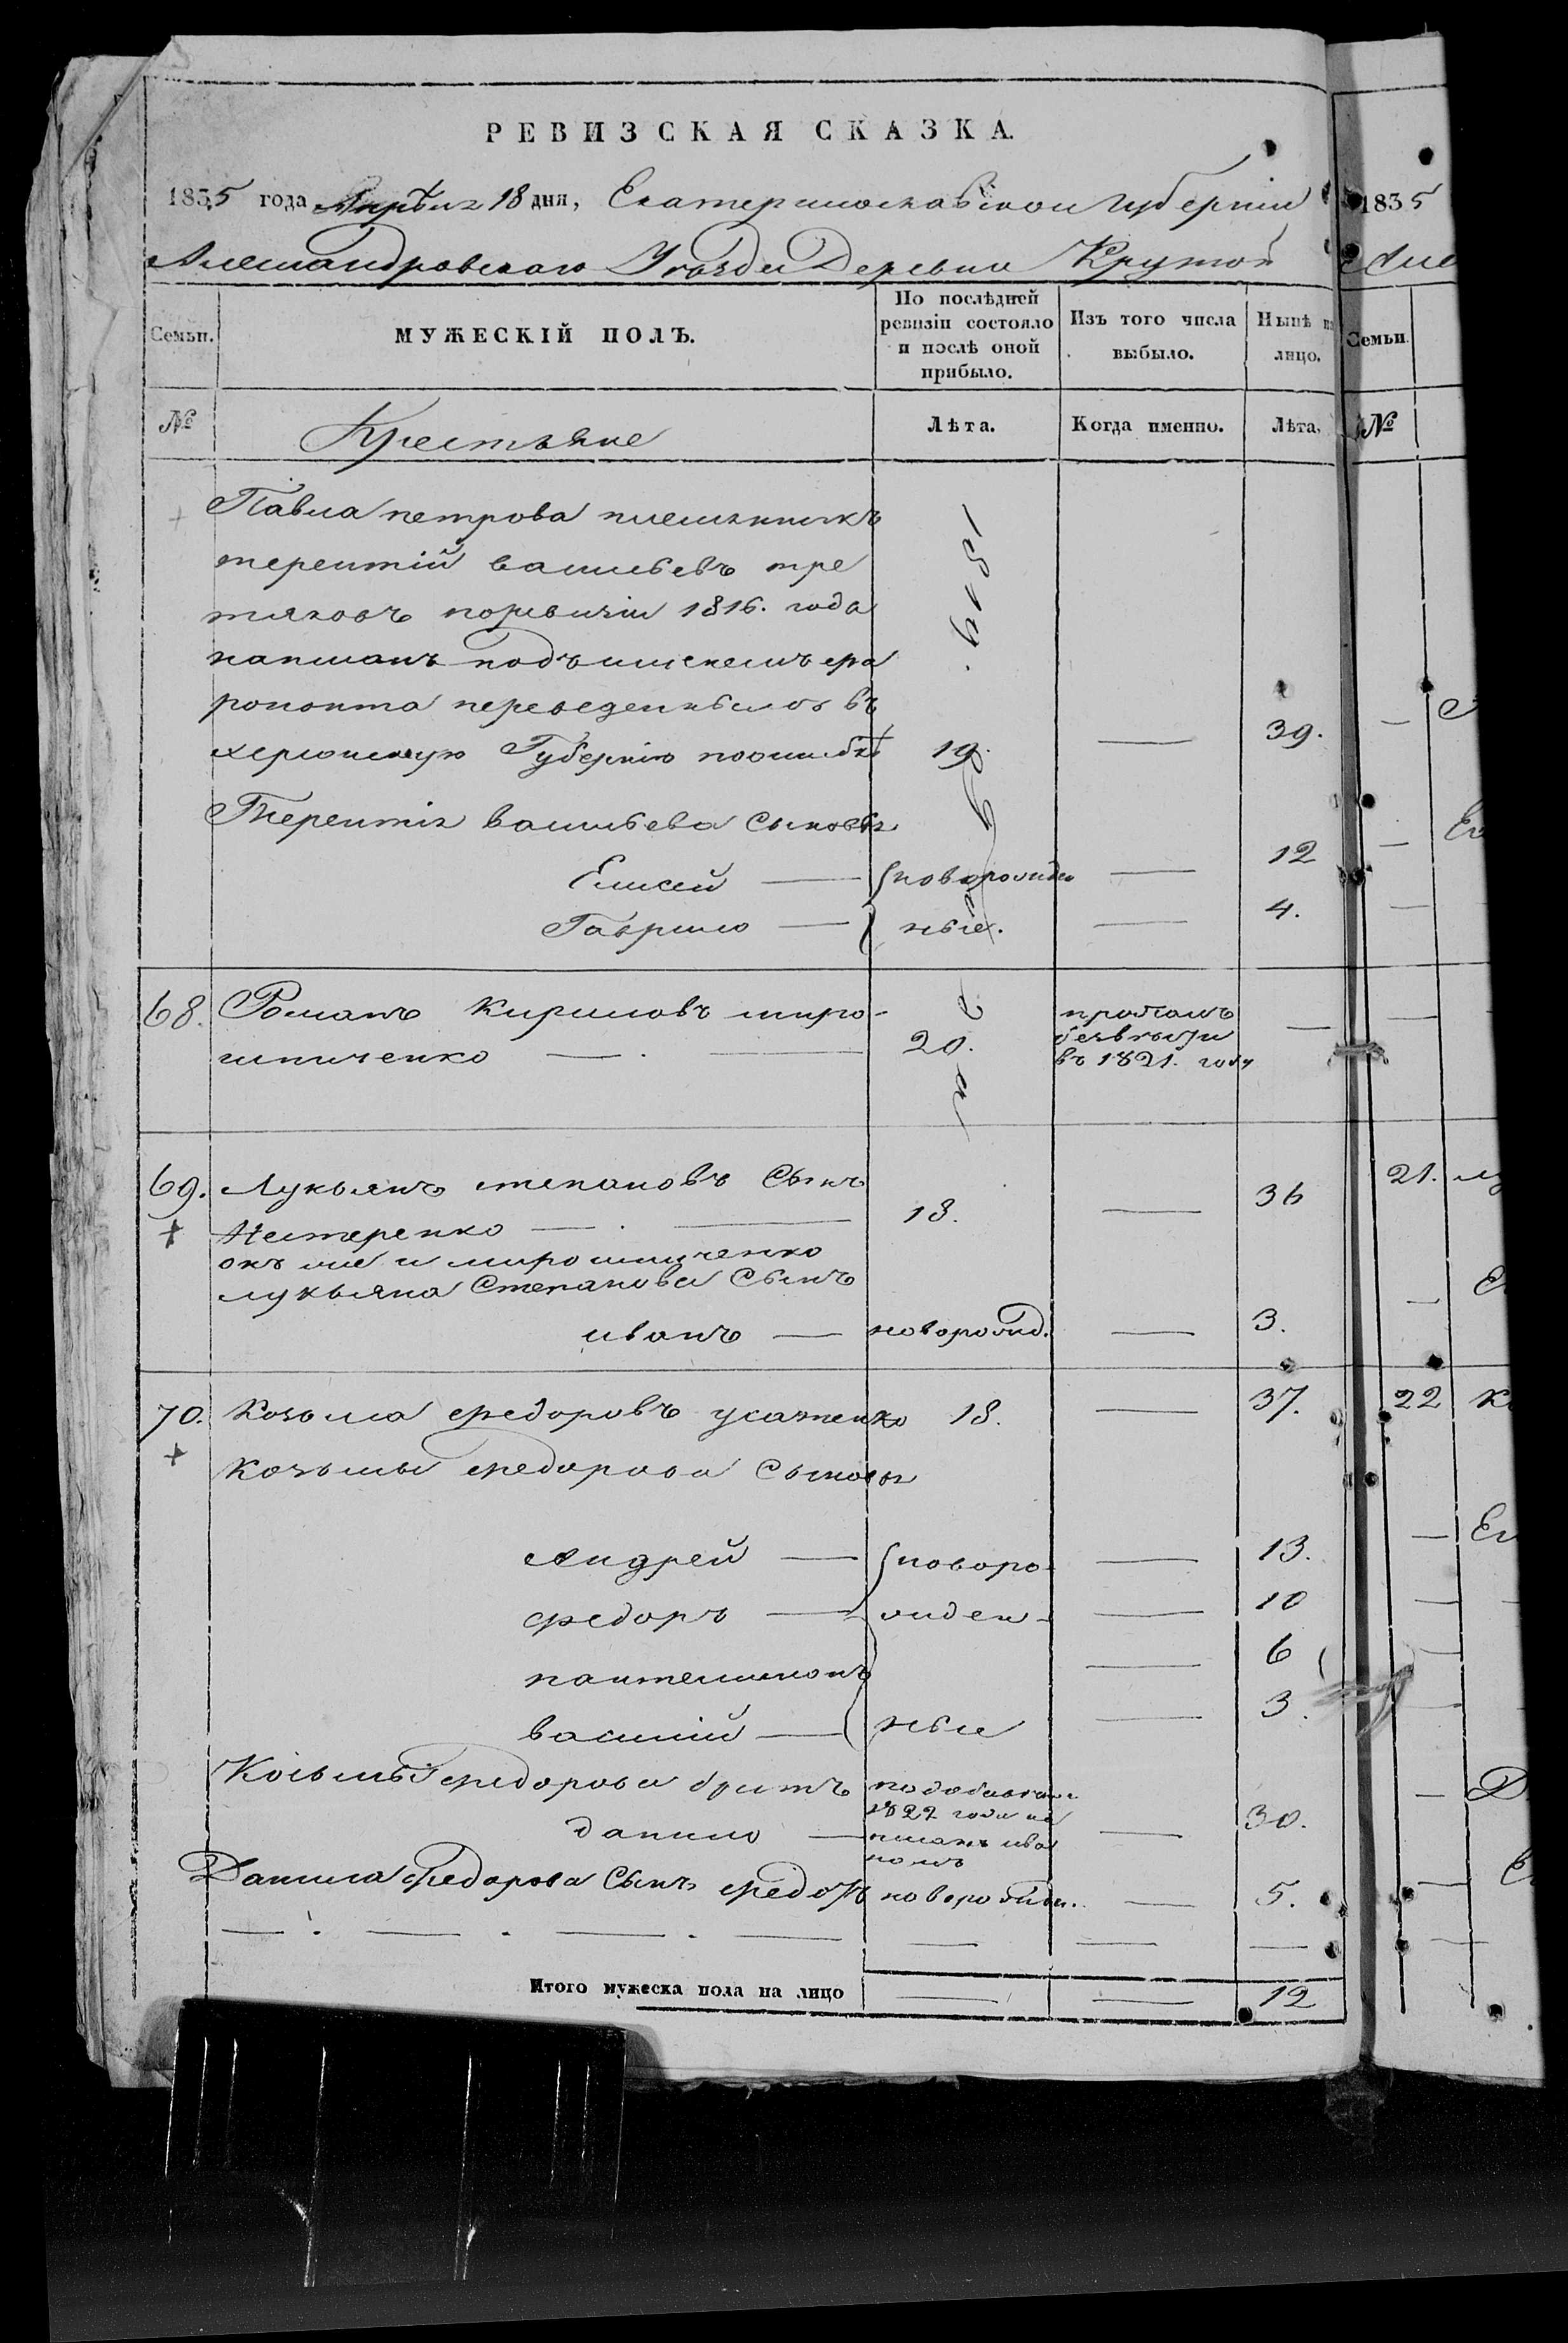 РЕВИЗСКАЯ СКАЗКА.
1835 года Апреля 18 дня, Екатеринославской Губерніи
Александровскаго Уѣзда Деревни Крутой
Семьи.
МУЖЕСКІЙ ПОЛЪ.
По послѣдней ревизіи состояло и послѣ оной прибыло.
Изъ того числа выбыло.
Нынѣ на лицо.
№
Крестьяне
Лѣта.
Когда именно.
Лѣта.
Павла петрова племянникъ
терентій васильевъ тре
тяковъ поревизіи 1816. года
написанъ подъ именемъ
переведеннымъ въ
херсонскую Губернію поошибкѣ 19. — 39.
Терентія васильева Сыновья
Елисей — новорожден — 12
Гаврило — ные. — 4.
68. Романъ Кириловъ миро-
шниченко — 20. пропалъ безвѣсти въ 1821. году —
69. Лукьянъ степановъ Сынъ
Нестеренко — 18. — 36
онъ же и мирошниченко
лукьяна Степанова Сынъ
иванъ — новорожд. — 3.
70. Козьма федоровъ усатенко 18. — 37.
Козьмы федорова Сыновья
Андрей — новоро- — 13.
федоръ — жден- — 10
пантелимонъ — 6
василій — ные — 3.
Козьмы федорова братъ
данило — 1822 года — 30.
Данила федорова Сынъ федоръ новорожден. — 5.
Итого мужеска пола на лицо — — 12
1835
Семьи.
№
21.
22